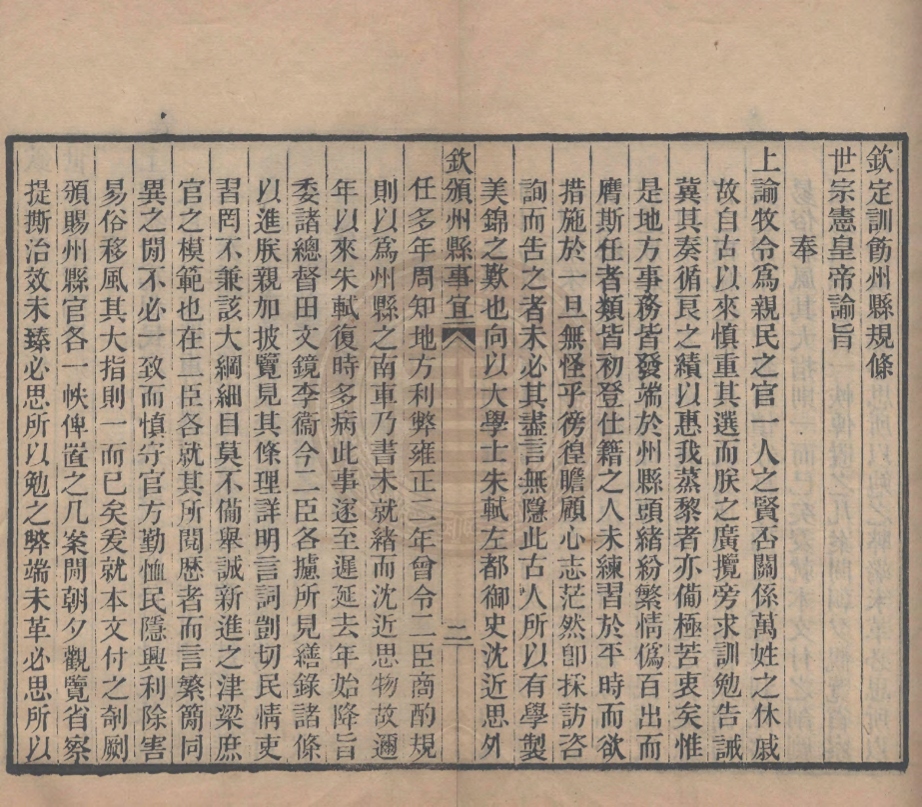 欽定訓飭州縣規條
世宗憲皇帝諭旨
奉
上諭牧令爲親民之官一人之賢否關係萬姓之休戚
故自古以來慎重其選而朕之廣攬旁求訓勉告誡
冀其奏循良之績以惠我蒸黎者亦備極苦衷矣惟
是地方事務皆發端於州縣頭緒紛繁情僞百出而
膺斯任者類皆初登仕籍之人未練習於平時而欲
措施於一旦無怪乎徬徨瞻顧心志茫然卽採訪咨
詢而告之者未必其盡言無隱此古人所以有學製
美錦之歎也向以大學士朱軾左都御史沈近思外
欽頒州縣事宜
二
任多年周知地方利弊雍正二年曾令二臣商酌規
則以爲州縣之南車乃書未就緒而沈近思物故邇
年以來朱軾復時多病此事遂至遲延去年始降旨
委諸總督田文鏡李衞今二臣各攄所見繕錄諸條
以進朕親加披覽見其條理詳明言詞剴切民情吏
習罔不兼該大綱細目莫不備舉誠新進之津梁庶
官之模範也在二臣各就其所閱歷者而言繁簡同
異之閒不必一致而慎守官方勤恤民隱興利除害
易俗移風其大指則一而已矣爰就本文付之剞劂
頒賜州縣官各一帙俾置之几案閒朝夕觀覽省察
提撕治效未臻必思所以勉之弊端未革必思所以